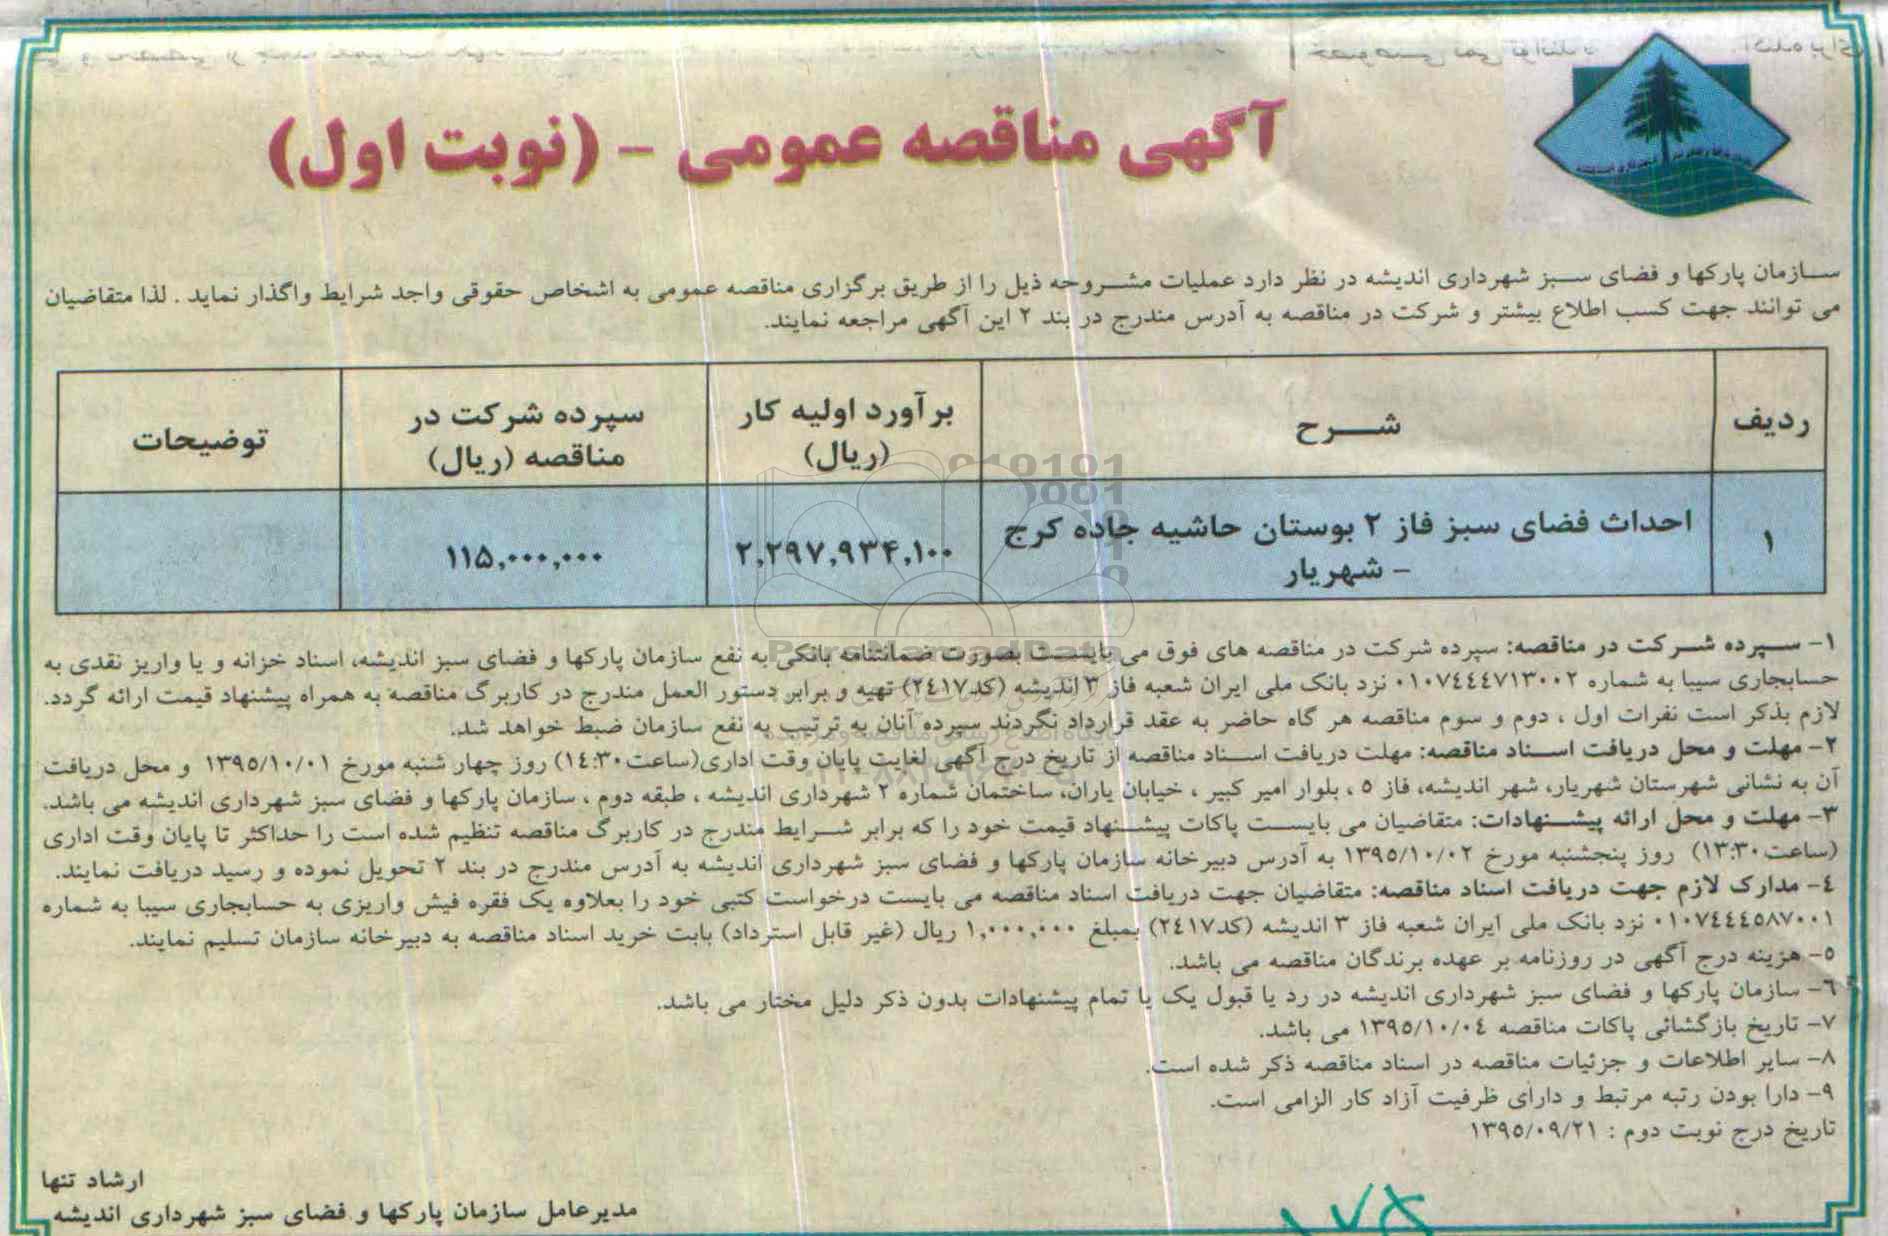 آگهی مناقصه عمومی - (نوبت اول)
ســازمان پارکها و فضای ســبز شهرداری اندیشه در نظر دارد عملیات مشــروحه ذیل را از طریق برگزاری مناقصه عمومی به اشخاص حقوقی واجد شرایط واگذار نماید . لذا متقاضیان
می توانند جهت کسب اطلاع بیشتر و شرکت در مناقصه به آدرس مندرج در بند ۲ این آگهی مراجعه نمایند.
ردیف شــــرح برآورد اولیه کار (ریال) سپرده شرکت در مناقصه (ریال) توضیحات
۱ احداث فضای سبز فاز ۲ بوستان حاشیه جاده کرج - شهریار ۲,۲۹۷,۹۳۴,۱۰۰ ۱۱۵,۰۰۰,۰۰۰
۱- ســپرده شــرکت در مناقصه: سپرده شرکت در مناقصه های فوق می بایســت بصورت ضمانتنامه بانکی به نفع سازمان پارکها و فضای سبز اندیشه، اسناد خزانه و یا واریز نقدی به
حسابجاری سیبا به شماره ۰۱۰۷۴۴۴۷۱۳۰۰۲ نزد بانک ملی ایران شعبه فاز ۳ اندیشه (کد۲۴۱۷) تهیه و برابر دستور العمل مندرج در کاربرگ مناقصه به همراه پیشنهاد قیمت ارائه گردد.
لازم بذکر است نفرات اول ، دوم و سوم مناقصه هر گاه حاضر به عقد قرارداد نگردند سپرده آنان به ترتیب به نفع سازمان ضبط خواهد شد.
۲- مهلت و محل دریافت اســناد مناقصه: مهلت دریافت اســناد مناقصه از تاریخ درج آگهی لغایت پایان وقت اداری(ساعت۱۴:۳۰) روز چهار شنبه مورخ ۱۳۹۵/۱۰/۰۱ و محل دریافت
آن به نشانی شهرستان شهریار، شهر اندیشه، فاز ۵ ، بلوار امیر کبیر ، خیابان یاران، ساختمان شماره ۲ شهرداری اندیشه ، طبقه دوم ، سازمان پارکها و فضای سبز شهرداری اندیشه می باشد.
۳- مهلت و محل ارائه پیشــنهادات: متقاضیان می بایســت پاکات پیشــنهاد قیمت خود را که برابر شــرایط مندرج در کاربرگ مناقصه تنظیم شده است را حداکثر تا پایان وقت اداری
(ساعت۱۳:۳۰) روز پنجشنبه مورخ ۱۳۹۵/۱۰/۰۲ به آدرس دبیرخانه سازمان پارکها و فضای سبز شهرداری اندیشه به آدرس مندرج در بند ۲ تحویل نموده و رسید دریافت نمایند.
۴- مدارک لازم جهت دریافت اسناد مناقصه: متقاضیان جهت دریافت اسناد مناقصه می بایست درخواست کتبی خود را بعلاوه یک فقره فیش واریزی به حسابجاری سیبا به شماره
۰۱۰۷۴۴۴۵۸۷۰۰۱ نزد بانک ملی ایران شعبه فاز ۳ اندیشه (کد۲۴۱۷) بمبلغ ۱,۰۰۰,۰۰۰ ریال (غیر قابل استرداد) بابت خرید اسناد مناقصه به دبیرخانه سازمان تسلیم نمایند.
۵- هزینه درج آگهی در روزنامه بر عهده برندگان مناقصه می باشد.
۶- سازمان پارکها و فضای سبز شهرداری اندیشه در رد یا قبول یک یا تمام پیشنهادات بدون ذکر دلیل مختار می باشد.
۷- تاریخ بازگشائی پاکات مناقصه ۱۳۹۵/۱۰/۰۴ می باشد.
۸- سایر اطلاعات و جزئیات مناقصه در اسناد مناقصه ذکر شده است.
۹- دارا بودن رتبه مرتبط و دارای ظرفیت آزاد کار الزامی است.
تاریخ درج نوبت دوم : ۱۳۹۵/۰۹/۲۱
ارشاد تنها
مدیرعامل سازمان پارکها و فضای سبز شهرداری اندیشه